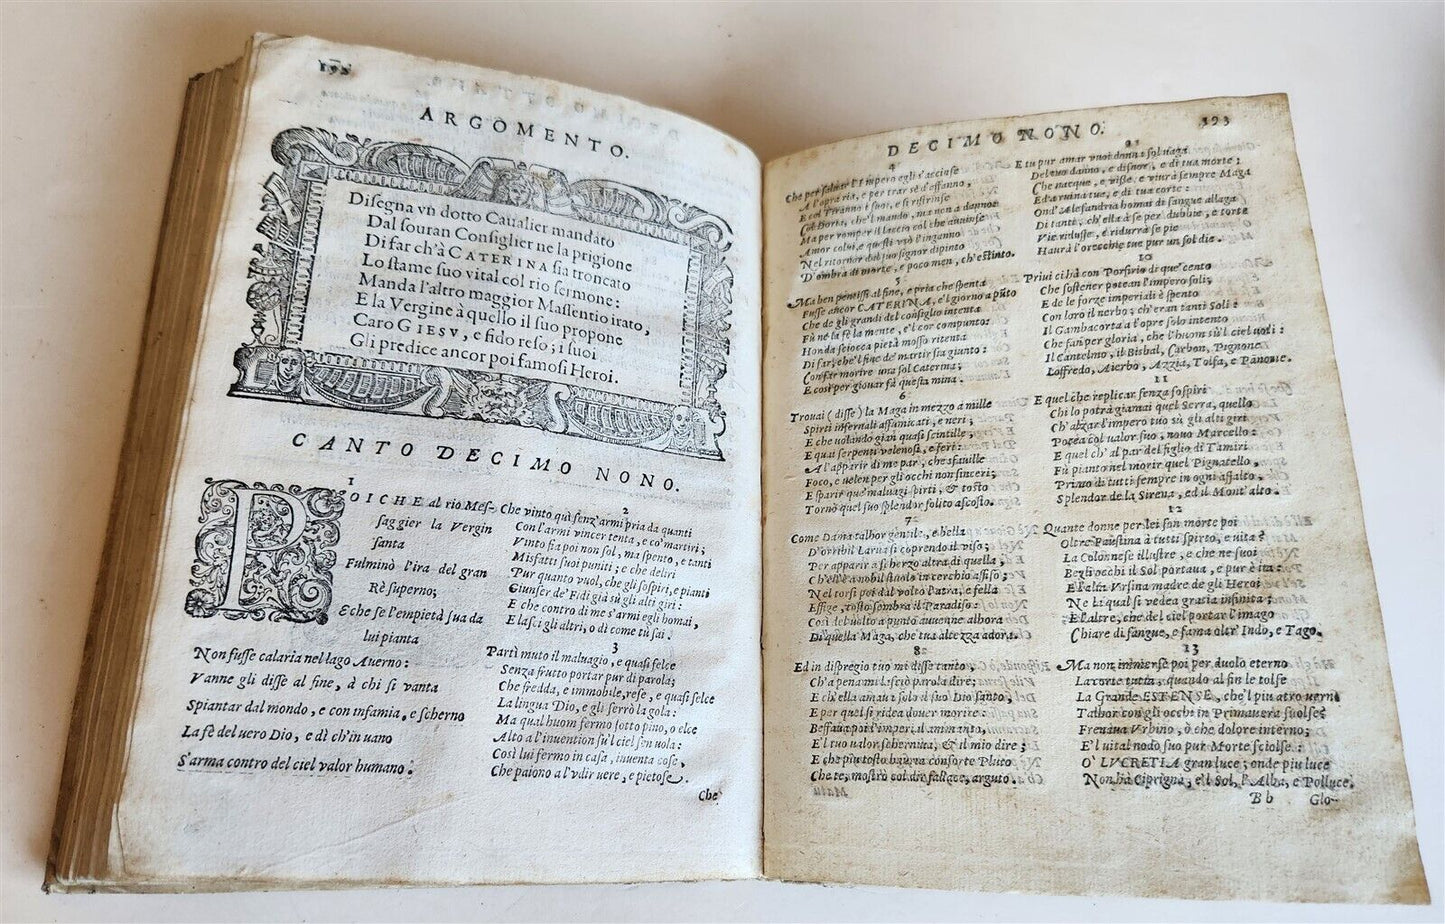 192
ARGOMENTO.
Disegna vn dotto Caualier mandato
Dal souran Consiglier ne la prigione
Di far ch'à CATERINA sia troncato
Lo stame suo vital col rio sermone:
Manda l'altro maggior Massentio irato,
E la Vergine à quello il suo propone
Caro GIESV, e fido reso; i suoi
Gli predice ancor poi famosi Heroi.
CANTO DECIMO NONO.
1
POICHE al rio Mes-
saggier la Vergin
santa
Fulminò l'ira del gran
Rè superno;
E che se l'empietà sua da
lui pianta
Non fusse calaria nel lago Auerno:
Vanne gli disse al fine, à chi si vanta
Spiantar dal mondo, e con infamia, e scherno
La fè del vero Dio, e dì ch'in uano
S'arma contro del ciel valor humano.
2
Che vinto quì senz'armi pria da quanti
Con l'armi vincer tenta, e co' martiri;
Vinto fia poi non sol, ma spento, e tanti
Misfatti suoi puniti; e che deliri
Pur quanto vuol, che gli sospiri, e pianti
Giunser de' Fidi già sù gli altri giri:
E che contro di me s'armi egli homai,
E lasci gli altri, o dì come tù sai.
3
Partì muto il maluagio, e quasi selce
Senza frutto portar pur di parola;
Che fredda, e immobile, rese, e quasi selce
La lingua Dio, e gli serrò la gola:
Ma qual huom fermo sotto pino, o elce
Alto a l'inuention su'l ciel sen uola:
Così lui fermo in casa, inuenta cose,
Che paiono a l'vdir uere, e pietose.
Che
DECIMO NONO.
193
4
Che per saluar l'Impero egli s'accinse
A l'opra ria, e per trar sè d'affanno,
E col Tiranno i suoi, e si ristrinse
Col Dotto, che'l mando, ma non a danno
Ma per romper il laccio col che auuinse
Amor colui, e questi vrò l'inganno
Nel ritornar dal suo signor dipinto
D'ombra di morte, e poco men, ch'estinto.
5
Ma ben pentissi al fine, e pria che spenta
Fusse ancor CATERINA, e'l giorno a pũto
Che de gli grandi del consiglio intenta
Fù ne la fè la mente, e'l cor compunto:
Honda sciocca pietà mosso ritenta
Di far, che'l fine de' martir sia giunto:
Con far morire una sol Caterina;
E così per giouar fà questa mina.
6
Trouai (disse) la Maga in mezzo a mille
Spirti infernali affumicati, e neri;
E che uolando gian quasi scintille,
E quai serpenti velenosi, e feri:
A l'apparir di me par, che sfauille
Foco, e uelen per gli occhi non sinceri;
E sparir que' maluagi spirti, & tosto
Tornò quel suo splendor solito ascosto.
7
Come Dama talhor gentile, e bella
D'orribil Larua si coprendo il viso;
Per apparir a scherzo altra di quella,
Ch'ell'è a nobil stuolo in cerchio assiso;
Nel torsi poi dal volto l'atra, e fella
Effige, tosto sembra il Paradiso:
Così del uolto a punto auuenne alhora
Di quella Maga, che tua altezza adora.
8
Ed in dispregio tuo mi disse tanto,
Ch'a pena mi lasciò parola dire;
E ch'ella amaua solo il suo Dio santo,
E per quel si ridea douer morire:
Beffaua poi l'imperi, il aminanto,
E'l tuo valor schernìua, & il mio dire;
E che più tosto hauria consorte Pluto
Che te, mostrò col dir fallace, arguto.
9
E tu pur amar vuoi donna sol uaga
Del euo danno, e disnor, e di tua morte:
Che nacque, e visse, e viurà sempre Maga
Ed a ruina tue, e di tua corte:
Ond'Alesandria homai di sangue allaga
Di tante, ch'ella à se per dubbie, e torte
Vie ridusse, e ridurrà se pie
Haurà l'orecchie tue pur un sol die.
10
Priui ci hà con Porfirio di que' cento
Che sostener poteano l'impero soli;
E de le forze imperiali è spento
Con loro il nerbo; ch'eran tanti Soli:
Il Gambacorta a l'opre solo intento
Che fan per gloria, che l'huom sù'l ciel uoli:
Il Cantelmo, il Bisbal, Carbon, Pignone
Loffredo, Aierbo, Azzia, Tolfa, e Panone.
11
E quel che replicar senza sospiri
Chi lo potrà giamai quel Serra, quello
Ch'alzar l'impero tuo sù gli alti giri
Potea col valor suo, nouo Marcello:
E quel ch'al par del figlio di Tamiri
Fù pianto nel morire quel Pignatello,
Primo di tutti sempre in ogni assalto,
Splendor de la Sirena, ed il Mont'alto.
12
Quante donne per lei son morte poi
Oltre Faustina à tutti spirto, e uita?
La Colonnese illustre, e che ne' suoi
Begli occhi il Sol portaua, e pur è ita:
E la Vrsina madre de gli Heroi
Ne li qual si vedea gratia infinita;
E l'altre, che del ciel portar l'imago
Chiare di sangue, e fama oltr'Indo, e Tago.
13
Ma non immerse poi per duolo eterno
La corte tutta, quando al fin le tolse
La Grande ESTENSE, che'l piu atro uerno
Talhor con gli occhi in Primauera suolse?
Frenaua Vrbino, ò che dolore interno;
E'l vital nodo suo pur Morte sciolse:
O' LVCRETIA gran luce; onde piu luce
Non hà Ciprigna, e'l Sol, l'Alba, e Polluce.
Bb
Glo-